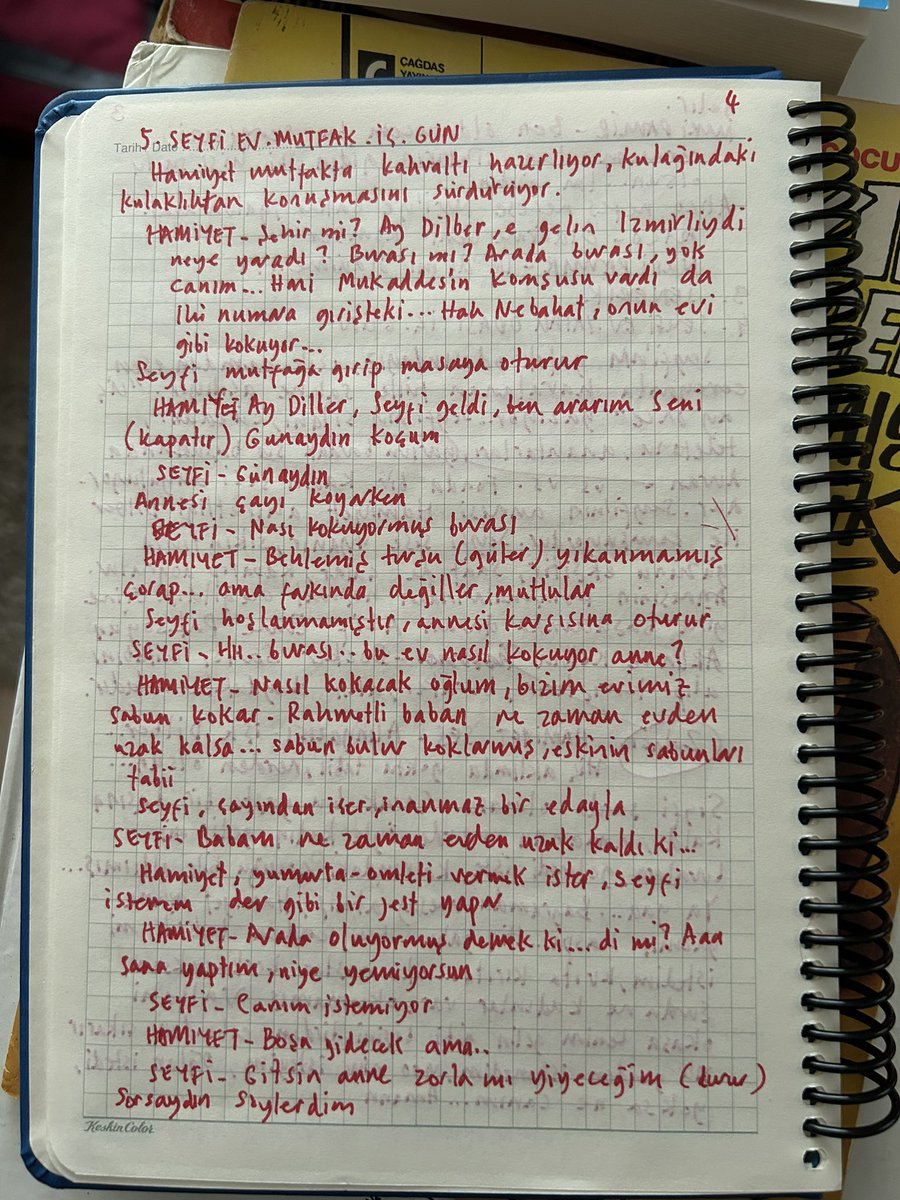 CAGDAS
YAYIN
4
Tarih / Date
5. SEYFİ EV. MUTFAK. İÇ. GÜN
Hamiyet mutfakta kahvaltı hazırlıyor, kulağındaki
kulaklıktan konuşmasını sürdürüyor.
HAMİYET - Şehir mi? Ay Dilber, e gelin İzmirliydi
neye yaradı? Burası mı? Arada burası, yok
canım... Hani Mukaddes'in komşusu vardı da
iki numara girişteki... Hah Nebahat, onun evi
gibi kokuyor...
Seyfi mutfağa girip masaya oturur
HAMİYET Ay Diller, Seyfi geldi, ben ararım seni
(kapatır) Günaydın koçum
SEYFİ - Günaydın
Annesi çayı koyarken
SEYFİ - Nası kokuyormuş burası
HAMİYET - Beklemiş turşu (güler) yıkanmamış
çorap... ama farkında değiller, mutlular
Seyfi hoşlanmamıştır, annesi karşısına oturur
SEYFİ - Hı.. burası.. bu ev nasıl kokuyor anne?
HAMİYET - Nasıl kokacak oğlum, bizim evimiz
sabun kokar. Rahmetli baban ne zaman evden
uzak kalsa... sabun bulur koklarmış, eskinin sabunları
tabii
Seyfi, çayından içer, inanmaz bir edayla
SEYFİ - Babam ne zaman evden uzak kaldı ki...
Hamiyet, yumurta-omleti vermek ister, Seyfi
istemem der gibi bir jest yapar
HAMİYET - Arada oluyormuş demek ki... di mi? Aaa
sana yaptım, niye yemiyorsun
SEYFİ - Canım istemiyor
HAMİYET - Boşa gidecek ama..
SEYFİ - Gitsin anne zorla mı yiyeceğim (durur)
Sorsaydın söylerdim
KeskinColor